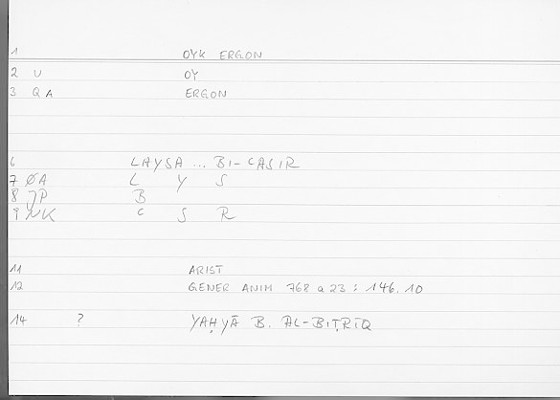 1 OYK ERGON
2 U OY
3 QA ERGON
6 LAYSA ... BI-CASIR
7 ØA L Y S
8 JP B
9 NK C S R
11 ARIST
12 GENER ANIM 768 a 23 : 146.10
14 ? YAḤYĀ B. AL-BIṬRĪQ